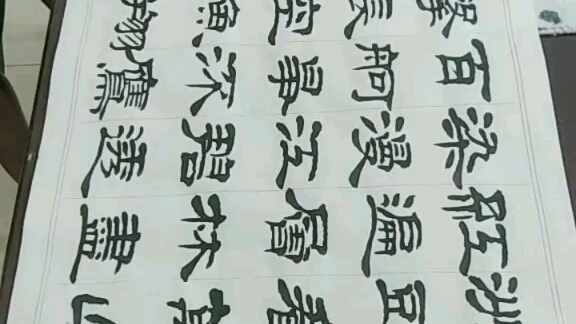 洲頭看萬山
紅遍層林盡
染漫江碧透
百舸爭流鷹
擊長空漁翔